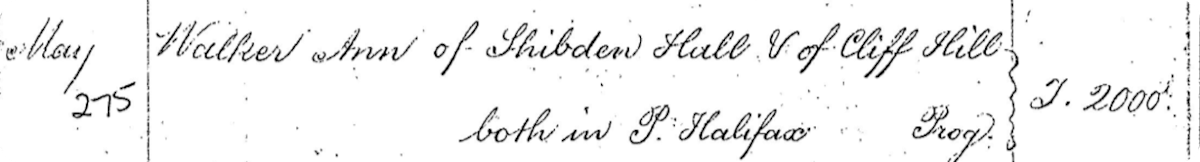 May Walker Ann of Shibden Hall & of Cliff Hill
275 both in P. Halifax Prog. T. 2000£.